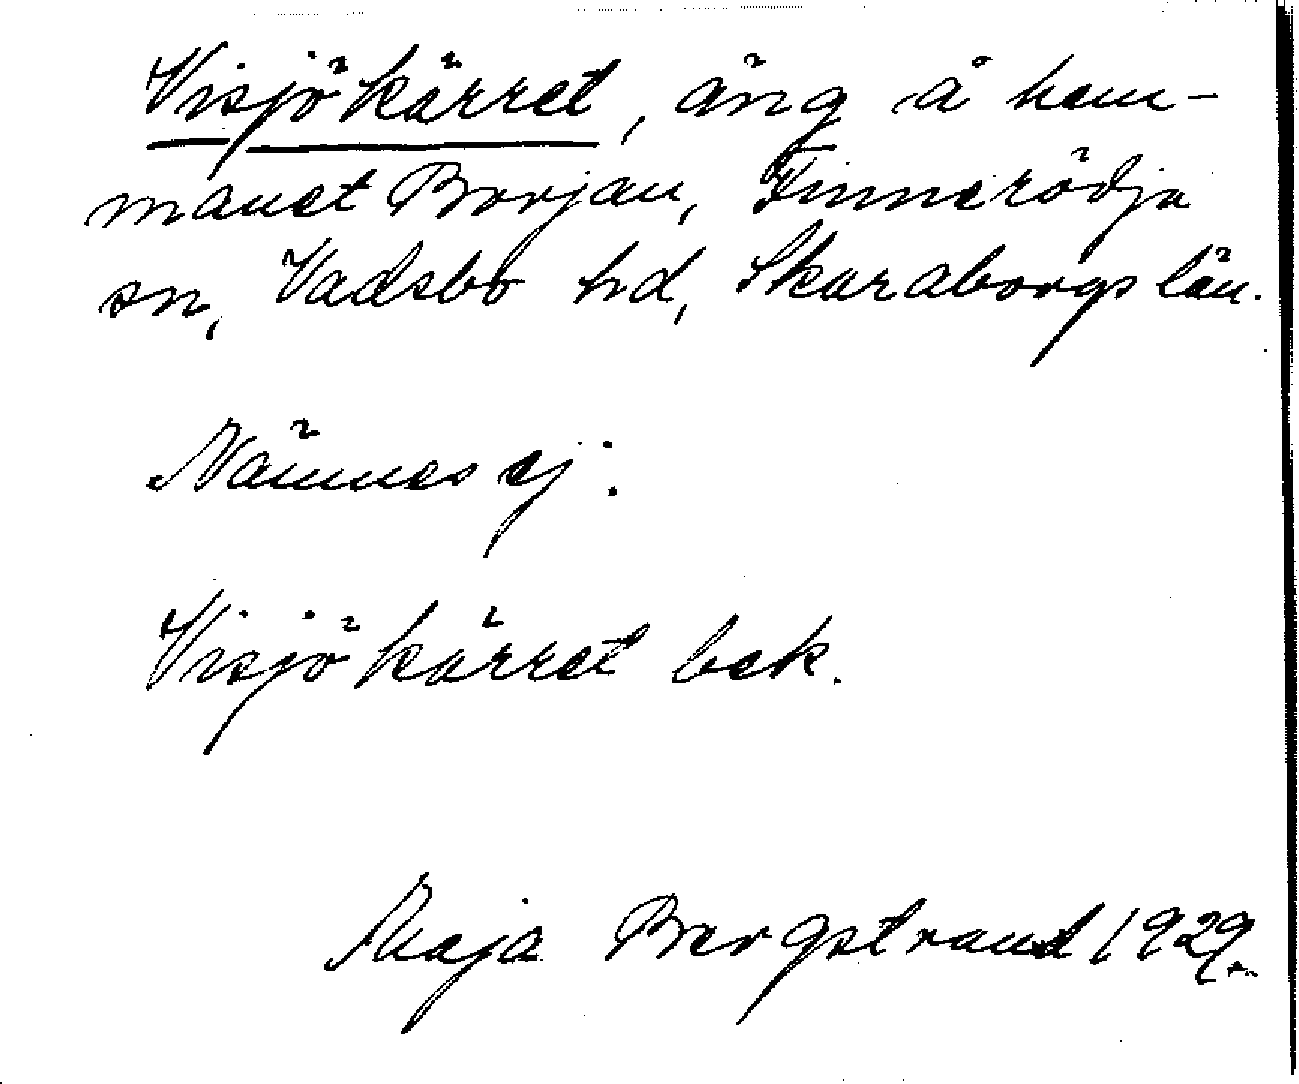 Visjökärret, äng å hem-
manet Borrjan, Finnerödja
sn, Vadsbo hd, Skaraborgs län.
Nämnes ej.
Visjökärret bek.
Maja Bergstrand 1929.